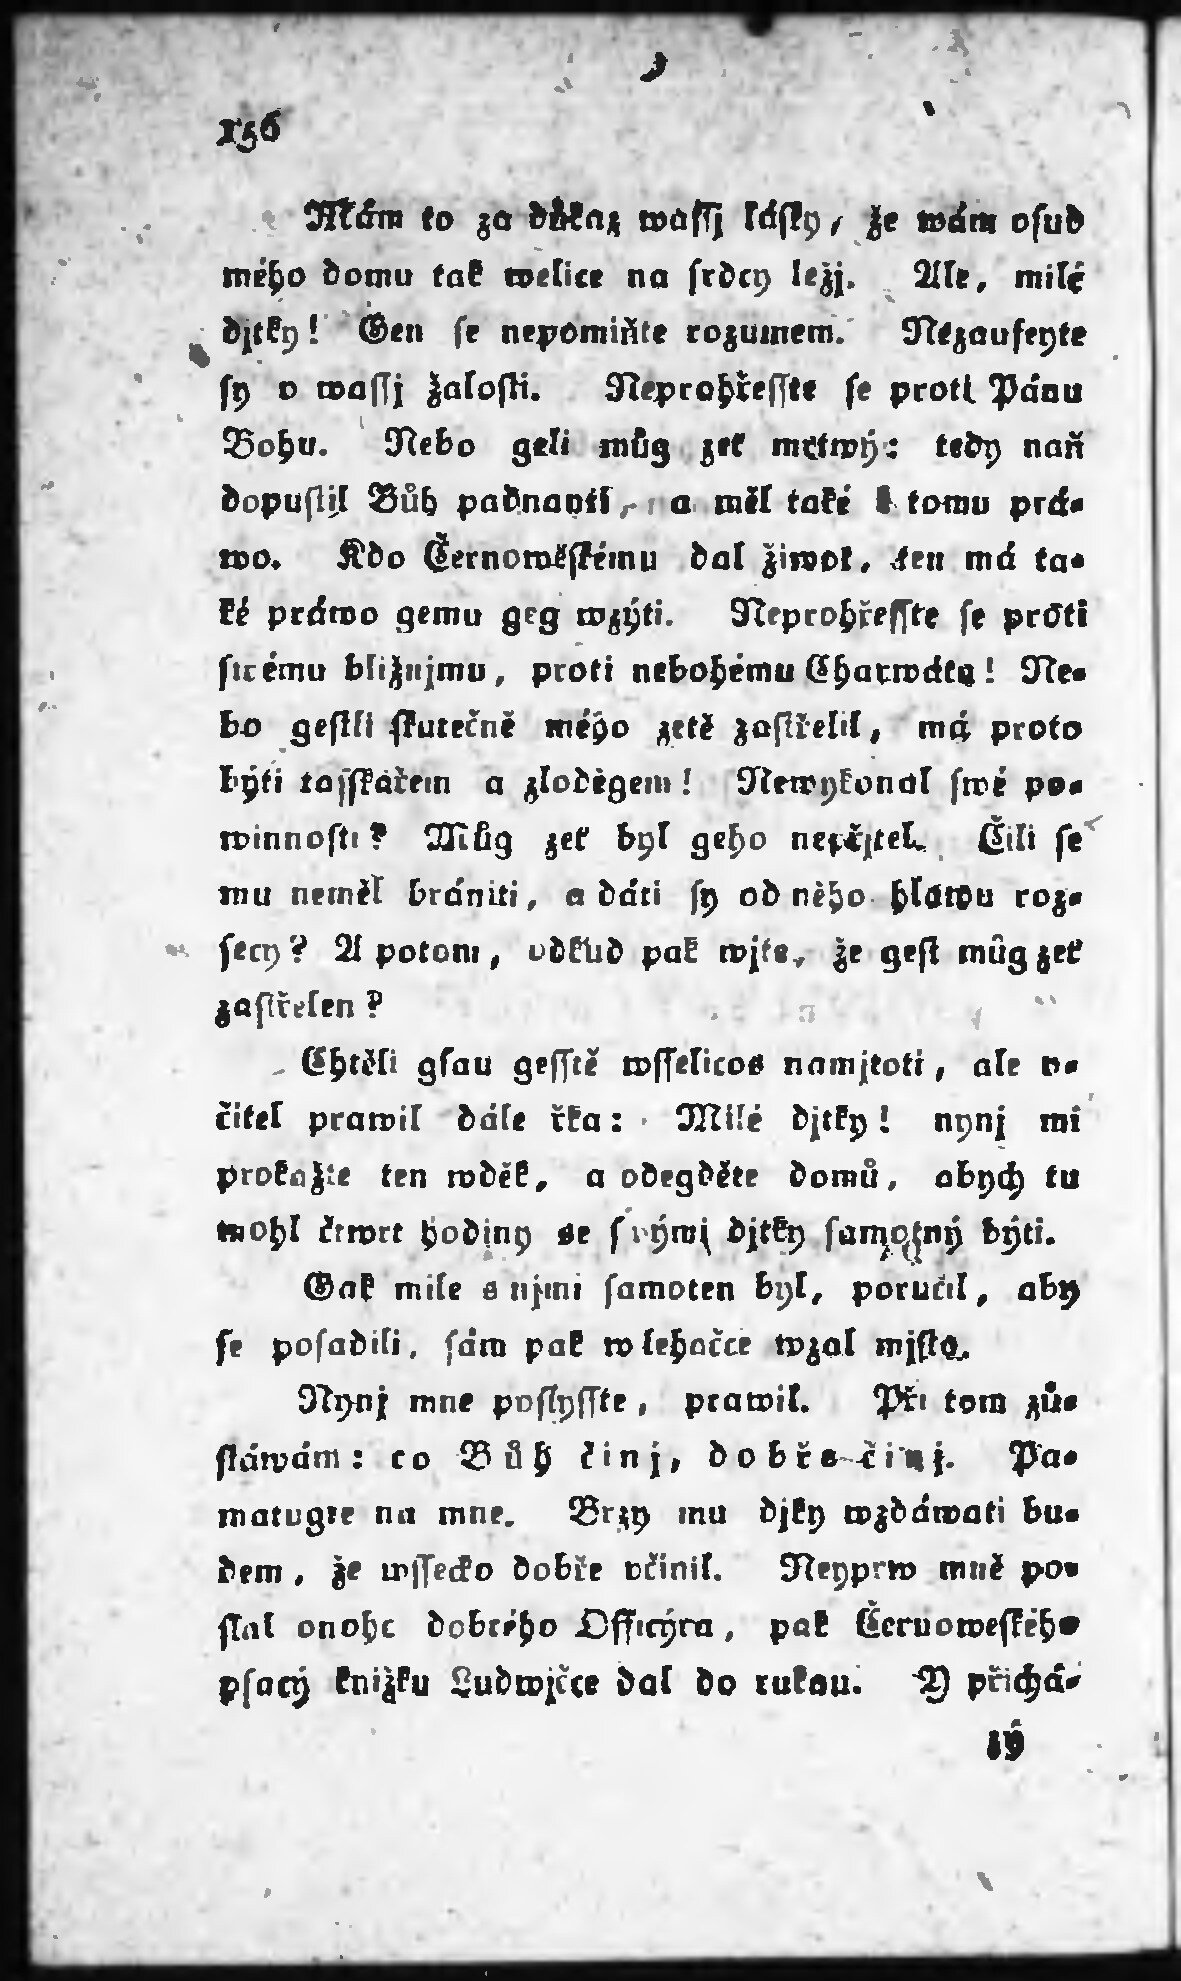 156
Mám to za důkaz wassj lásky, že wám osud
mého domu tak welice na srdcy ležj. Ale, milé
djtky! Gen se nepomiňte rozumem. Nezaufeyte
sy v wassj žalosti. Neprohřesste se proti Pánu
Bohu. Nebo geli můg zeť mrtwý: tedy naň
dopustil Bůh padnautí, a měl také k tomu prá-
wo. Kdo Černowěskému dal žiwot, ten má ta-
ké práwo gemu geg wzýti. Neprohřesste se proti
swému bližnjmu, proti nebohému Charwátu! Ne-
bo gestli skutečně mého zetě zastřelil, má proto
býti tajskářem a zlodègem! Newykonal swé po-
winnosti? Můg zeť byl geho nepřjtel. Čili se
mu neměl brániti, a dáti sy od něho hlawu roz-
secy? A potom, odkud pak wjte, že gest můg zeť
zastřelen?
Chtěli gsau gesstě wsselicos namjtati, ale v-
čitel prawil dále řka: Milé djtky! nynj mi
prokažte ten wděk, a odegděte domů, abych tu
mohl čtwrt hodiny se swými djtky samotný býti.
Gak mile s njmi samoten byl, poručil, aby
se posadili, sám pak w lehačce wzal mjsto.
Nynj mne poslysste, prawil. Při tom zů-
stáwám: co Bůh činj, dobře činj. Pa-
matugte na mne. Brzy mu djky wzdáwati bu-
dem, že wssecko dobře včinil. Neyprw mně po-
slal onoho dobrého Officýra, pak Černoweského
psacý knižku Ludwjčce dal do rukau. Y přichá-
zý